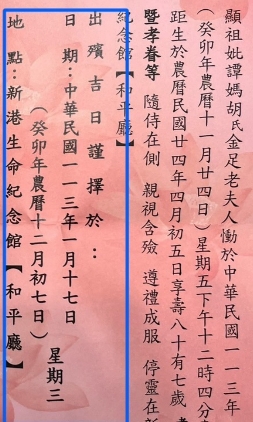 顯祖妣譚媽胡氏金足老夫人慟於中華民國一一三年
(癸卯年農曆十一月廿四日)星期五下午十二時四分
距生於農曆民國廿四年四月初五日享壽八十有七歲
暨孝眷等 隨侍在側 親視含殮 遵禮成服 停靈在
紀念館【和平廳】
出殯吉日謹擇於:
日 期:中華民國一一三年一月十七日
(癸卯年農曆十二月初七日)星期三
地 點:新港生命紀念館【和平廳】